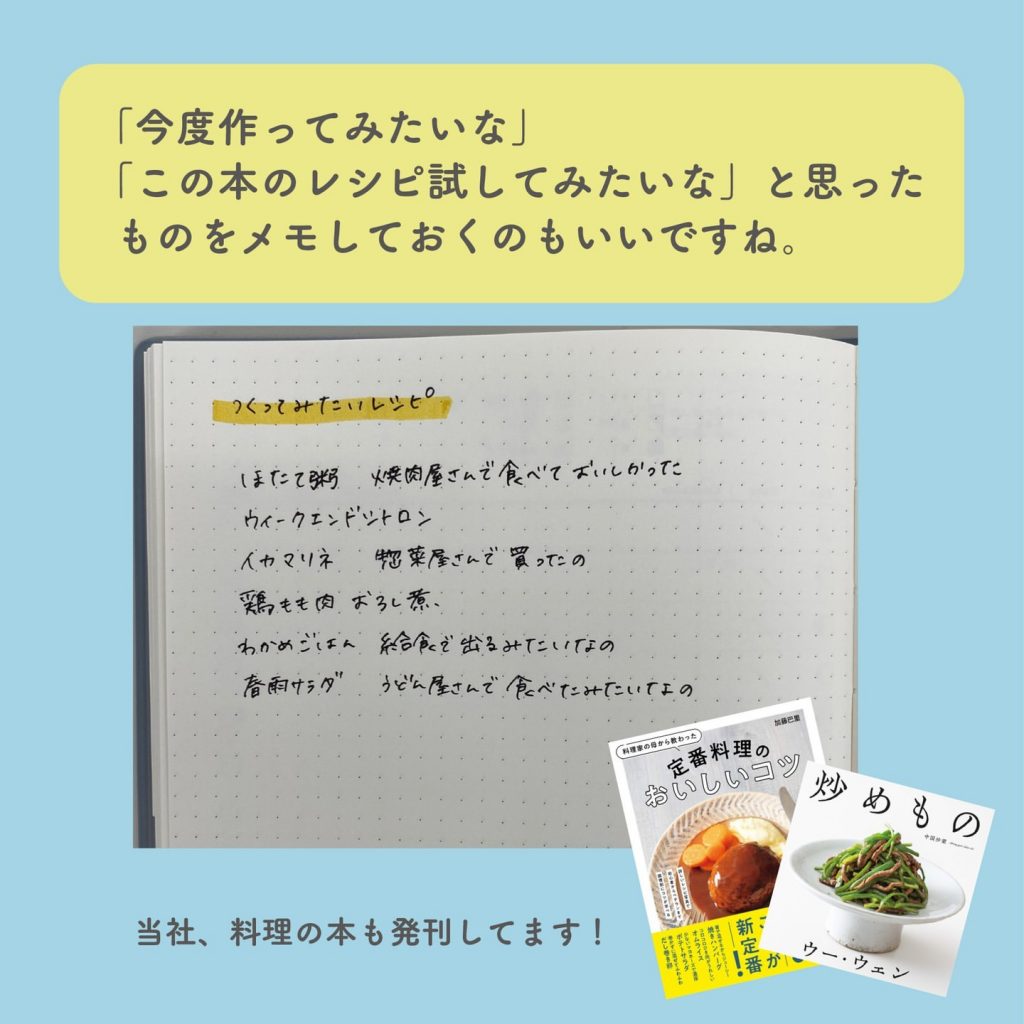 「今度作ってみたいな」
「この本のレシピ試してみたいな」と思った
ものをメモしておくのもいいですね。
つくってみたいレシピ
ほたて粥 焼肉屋さんで食べておいしかった
ウィークエンドシトロン
イカマリネ 惣菜屋さんで買ったの
鶏もも肉おろし煮、
わかめごはん 給食で出るみたいなの
春雨サラダ うどん屋さんで食べたみたいなの
加藤巴里
料理家の母から教わった
定番料理の
おいしいコツ
焼きハンバーグ
オムライス
ポテトサラダ
だし巻き卵
新定番が
炒めもの
中国炒菜
ウー・ウェン
当社、料理の本も発刊してます！